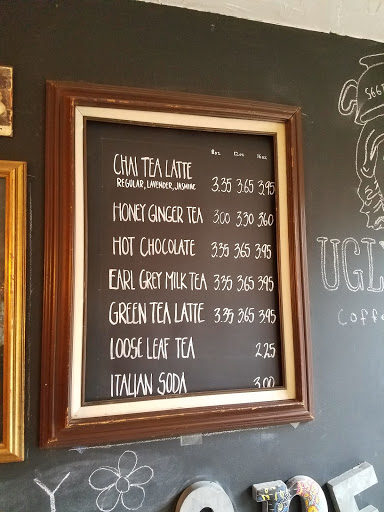 8oz. 12oz. 16oz.
CHAI TEA LATTE
REGULAR, LAVENDER, JASMINE 3.35 3.65 3.95
HONEY GINGER TEA 3.00 3.30 3.60
HOT CHOCOLATE 3.35 3.65 3.95
EARL GREY MILK TEA 3.35 3.65 3.95
GREEN TEA LATTE 3.35 3.65 3.95
LOOSE LEAF TEA 2.25
ITALIAN SODA 3.00
UGL
Coffe
Y